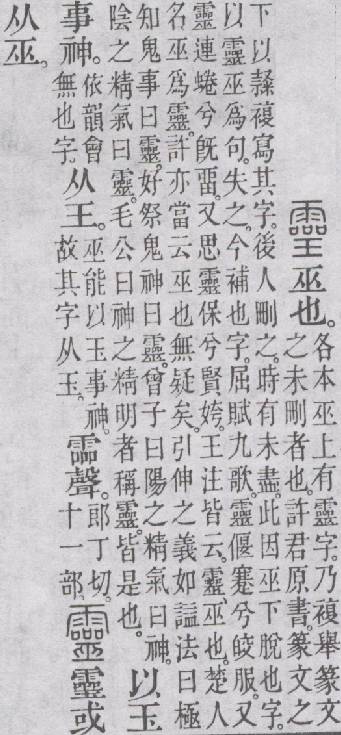 𤫊巫也。各本巫上有靈字。乃複舉篆文
之未刪者也。許君原書。篆文之
下以隸複寫其字。後人刪之。時有未盡。此因巫下脫也字。
以靈巫爲句。失之。今補也字。屈賦九歌。靈偃蹇兮皎服。又
靈連蜷兮旣畱。又思靈保兮賢姱。王注皆云。靈巫也。楚人
名巫爲靈。許亦當云巫也無疑矣。引伸之義如謚法曰極
知鬼事曰靈。好祭鬼神曰靈。曾子曰陽之精氣曰神。
陰之精氣曰靈。毛公曰神之精明者稱靈。皆是也。以玉
事神。依韻會無也字。从王。巫能以玉事神。故其字从玉。霝聲。郎丁切。十一部。靈靈或
从巫。